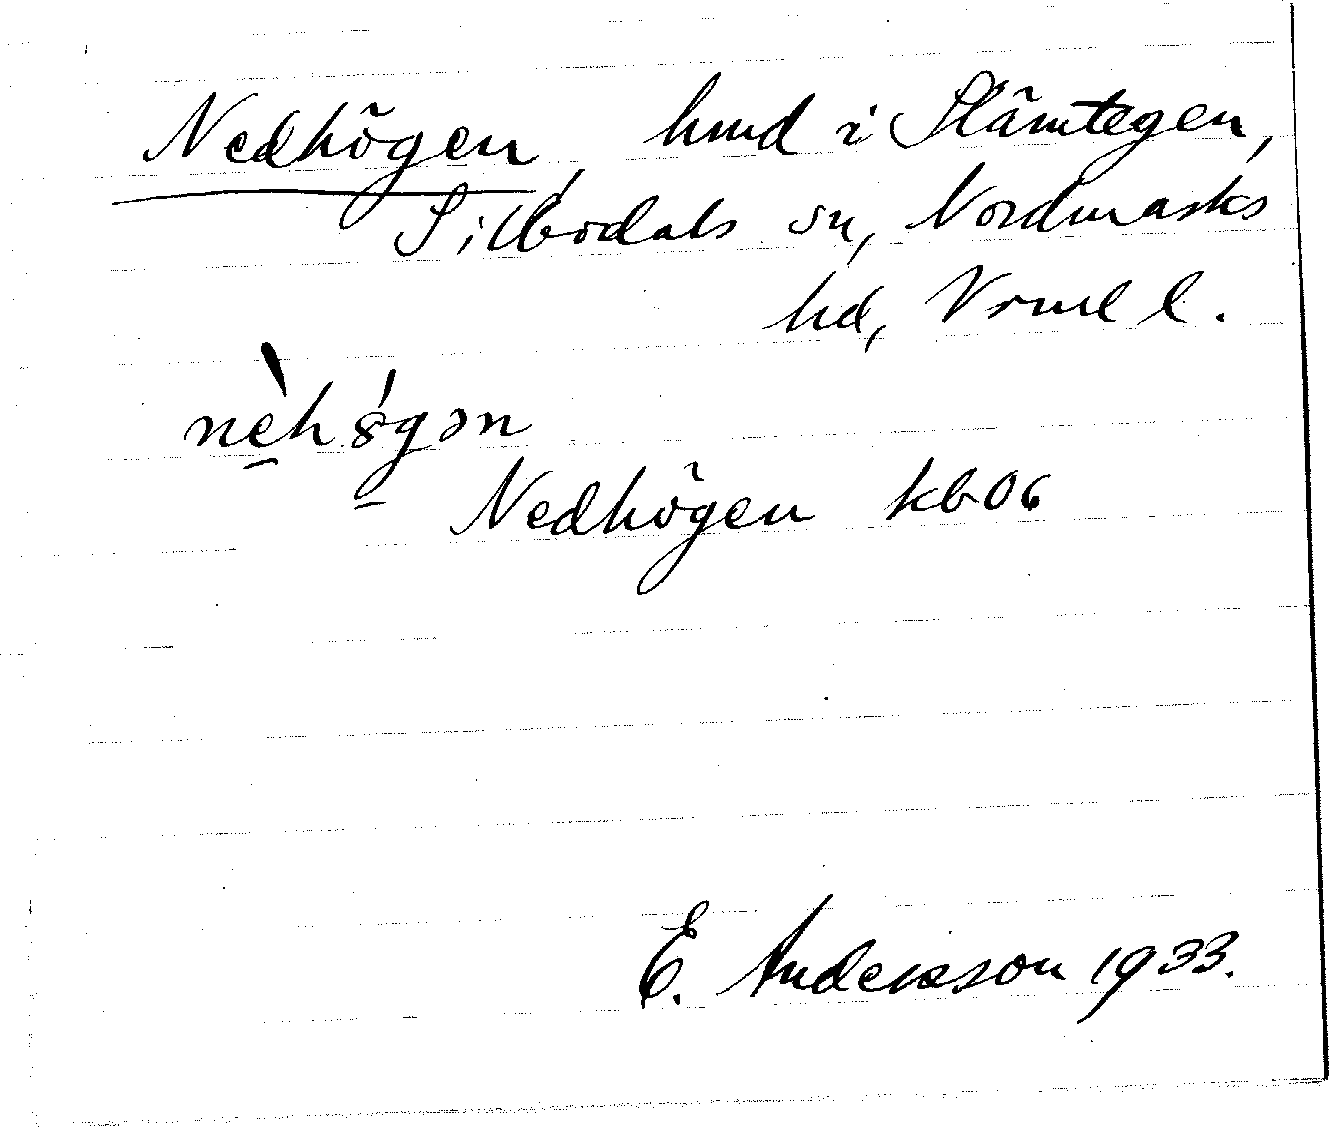 Nedhögen, hmd i Slämtegen,
Sillbodals sn, Nordmarks
hd, Vrml l.
nèhǿgən
Nedhögen kb06
E. Andersson 1933.